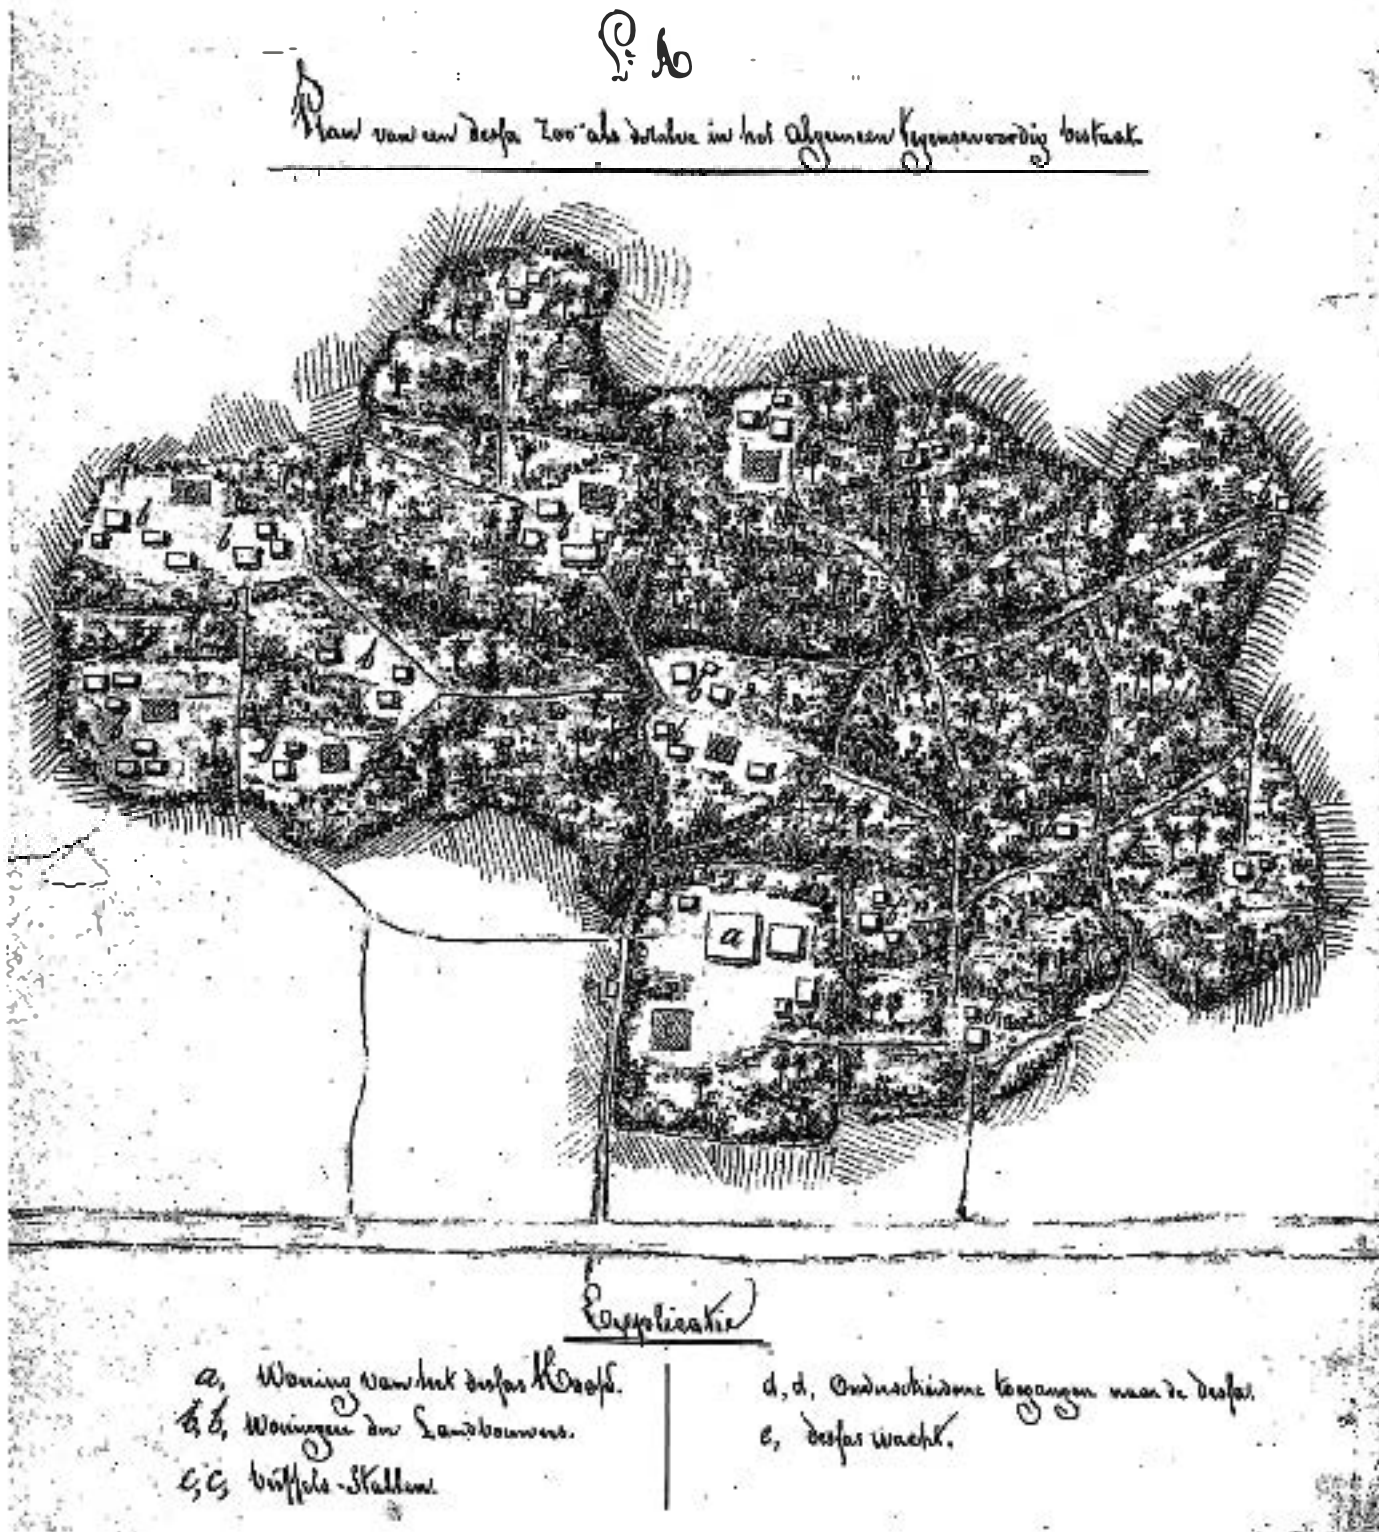 La. A
Plan van een dessa zoo als dezelve in het algemeen tegenswoordig bestaat.
a
Explicatie
a, Woning van het dessas Hoofd.
b, b, Woningen der Landbouwers.
c, c, buffels-Stallen.
d, d, Onderscheidene toegangen naar de dessa.
e, dessas wacht.